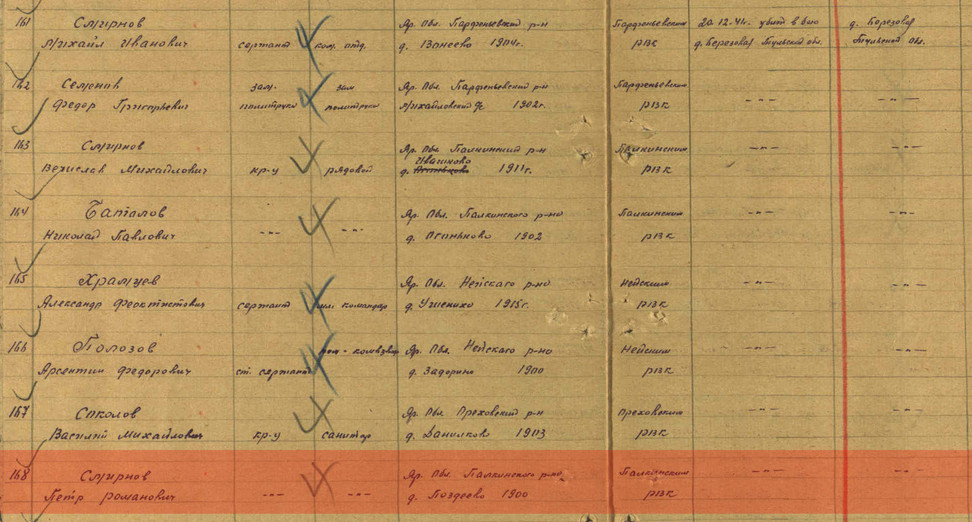 161 Смирнов Яр. Обл. Парфеньевский р-н Парфеньевским 20.12.41г. убит в бою д. Березова
Михаил Иванович сержант ком. отд. д. 1904г. РВК д. Березова Тульской обл. Тульской обл.
162 Семенов зам. зам Яр. Обл. Парфеньевский р-н Парфеньевским
Федор Григорьевич политрука политрука Михайловский 1902г. РВК -"- -"-
163 Смирнов Яр. Обл. Палкинский р-н Палкинским -"- -"-
Иваньково
Вечислав Михайлович кр-ц рядовой д. 1911г. РВК
164 Баталов Яр. Обл. Палкинского р-на Палкинским -"- -"-
Николай Павлович -"- -"- д. 1902 РВК
165 Храмцев Яр. Обл. Нейского р-на Нейским -"- -"-
Александр Феоктистович сержант командир д. 1915г. РВК
166 Полозов пом-комвзвода Яр. Обл. Нейского р-на Нейским -"- -"-
Арсентий Федорович ст. сержант д. Задорино 1900 РВК
167 Соколов Яр. Обл. Ореховский р-н Ореховским -"- -"-
Василий Михайлович кр-ц санитар д. Данилково 1903 РВК
168 Смирнов Яр. Обл. Палкинского р-на Палкинским -"- -"-
Петр Романович -"- -"- д. Поздеево 1900 РВК